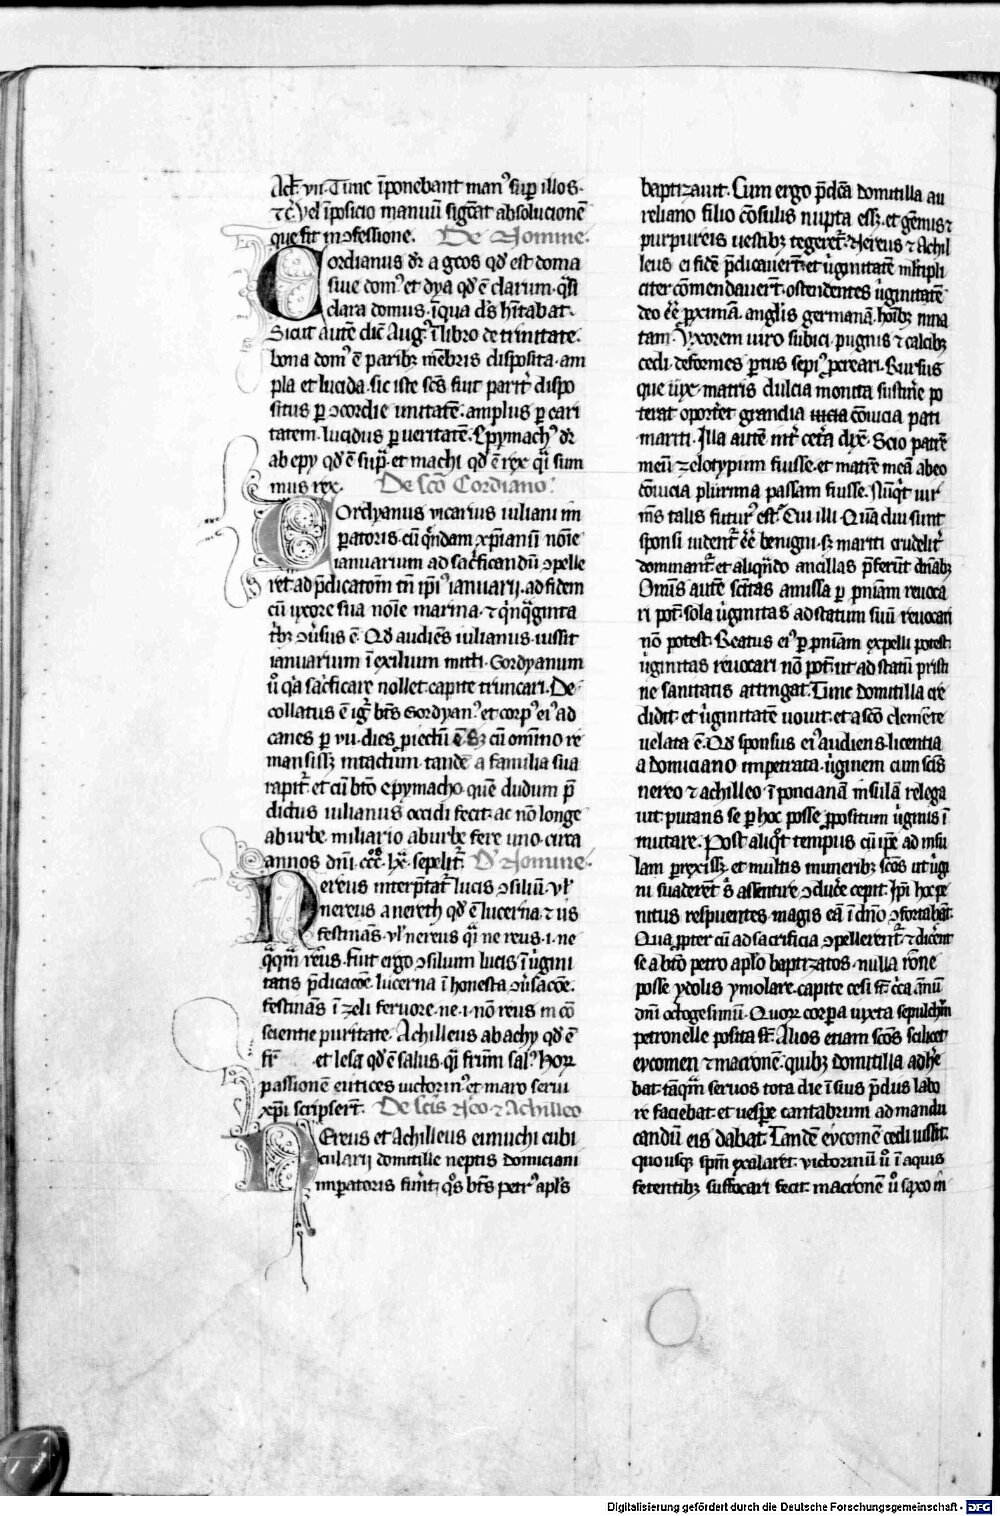 Act̄. vii. Tunc īponebant man⁹ suꝑ illos.
⁊c̄. Vel īposicio manuū sigͨcat absolucionē
que fit in ꝯfessione. De Nomine.
Cordianus dr̄ a geos qd̓ est doma
siue dom⁹. et dya qd̓ ē clarum. qͣsi
clara domus. īqua ds̄ hītabat.
Sicut autē dic̄ Aug⁹. ī libro de trinitate.
bona dom⁹ ē paribꝫ mēbris disposita. am
pla et lucida. sic iste scs̄ fuit parit̓ dispo
situs ꝑ ꝯcordie unitatē. amplus ꝑ cari
tatem. lucidus ꝑ ueritatē. Epymach⁹ dr̄
ab epy qd̓ ē supͣ. et machi qd̓ ē rex qͣi sum
mus rex. De scō Cordiano.
Cordyanus vicarius iuliani im
ꝑatoris. cū qͥndam xp̄iansū noīe
ianuarium ad sacͥficandū ꝯpelle
ret. ad p̄dicatōm tn̄ ip̄i⁹ ianuarij. ad fidem
cū uxore sua noīe marina. ⁊ qͥnqͣginta
tͥbꝫ ꝯu̓sus ē. Qd̓ audiēs iulianus. iussit
ianuarium ī exilium mitti. Gordyanum
u̓ qͥa sacͥficare nollet. capite truncari. De
collatus ē igͥ bt̄s Gordyan⁹. et corp⁹ ei⁹ ad
canes ꝑ vii. dies ꝓiectū ē. Sꝫ cū omnino re
mansissꝫ intactum. tandē a familia sua
rapit᷑. et cū bt̄o epymacho. quē dudum p̄
dictus iulianus occidi fecit. ac nō longe
ab urbe. miliario ab urbe fere uno. circa
annos dn̄i. cͨcͨ. lx. sepelit᷑. De Nomine.
Nereus interp̄tat᷑ lucis ꝯsiliū. Vl̓
nereus a nereth qd̓ ē lucerna. ⁊ us
festinās. vl̓ nereus qͣi ne reus. i. ne
qͣqͣm reus. Fuit ergo ꝯsilium lucis ī u̓gini
tatis p̄dicacōe. lucerna ī honesta ꝯu̓sacōe.
festinās ī zeli feruore. ne. i. nō reus in cō
scientie puritate. Achilleus ab achy qd̓ ē
fr̄ et lesa qd̓ ē salus. qͣi frūm sal⁹. Hoꝝ
passionē eutices uictorin⁹. et maro serui
xp̄i scripsert̄. De scīs Neͦo ⁊ Achilleo
Nereus et Achilleus eunuchi cubi
cularij domitille neptis domiciani
imperatoris fuert̄. qͦs bt̄s petr⁹ apl̄s
baptizauit. Cum ergo p̄dcā domitilla au
reliano filio cōsulis nupta essꝫ. et gēmis ⁊
purpureis uestibꝫ tegeret᷑. Nereus ⁊ Achil
leus ei fidē p̄dicauert̄. et u̓ginitatē mͭlipli
citer cōmendauert̄. ostendentes u̓ginitatē
deo ēē ꝓximā. anglīs germanā. hoībꝫ inna
tam. Vxorem uiro subici. pugnis ⁊ calcibꝫ
cedi. deformes ꝑtus sepi⁹ ꝑereari. Rursus
que uix. matris dulcia monita sustin̓e po
terat oport̓et grandia cōuicia pati
mariti. Illa autē int̓ cet̓a dix̄. Scio patrē
meū zelotypum fuisse. et matrē meā abeo
cōuicia plurima passam fuisse. Nūqͥt uir
ms̄ talis futur⁹ est. Cui illi. Quā diu sunt
sponsi uident᷑ ēē benigni. sꝫ mariti crudelit̓
dominant᷑. et aliqn̄do ancillas p̄ferūt dn̄abꝫ
Omīs autē scītas amissa ꝑ pn̄iam reuoca
ri pot̄. sola u̓ginitas ad statum suū reuocari
nō potest. Reatus ei⁹ ꝑ pn̄iam expelli potest.
u̓ginitas reuocari nō pot̄. ut ad statū pristi
ne sanitatis attingat. Tunc domitilla cre
didit. et u̓ginitatē uouit. et a scō clemēte
uelata ē. Qd̓ sponsus ei⁹ audiens. licentia
a domiciano impetrata. u̓ginem cum scīs
nereo ⁊ achilleo. ī poncianā insulā relega
uit. putans se ꝑ hoc posse ꝓpositum u̓ginis ī
mutare. Post aliqͦt tempus cū ip̄e ad insu
lam ꝑrexissꝫ. et multis muneribꝫ scōs ut u̓gi
ni suaderēt sͥ assentire ꝯduc̓e cepit. Ip̄i hoc pe
nitus respuentes. magis eā ī dn̄o ꝯfortabāt.
Qua ꝓpter cū ad sacrificia ꝯpellerent᷑. ⁊ dic̓ent
se a bt̄o petro apl̄o baptizatos. nulla rōne
posse ydolis ymolare. capite cesi st̄. cͥca annū
dn̄i octogesimū. Quoꝝ corꝑa iuxta sepulchͬm
petronelle posita st̄. Alios etiam scōs scilicet
eycomen ⁊ macronē. quibꝫ domitilla adhē
bat. tāqͣm seruos tota die ī suis p̄dus labo
re faciebat. et uesꝑe cantabrum ad mandu
candū eis dabat. Tandē eycomē cedi iussit.
quo usqꝫ spm̄ exalaret. victorinū u̓ ī aquis
fetentibꝫ suffocari fecit. macronē u̓ saxo in
Digitalisierung gefördert durch die Deutsche Forschungsgemeinschaft - DFG